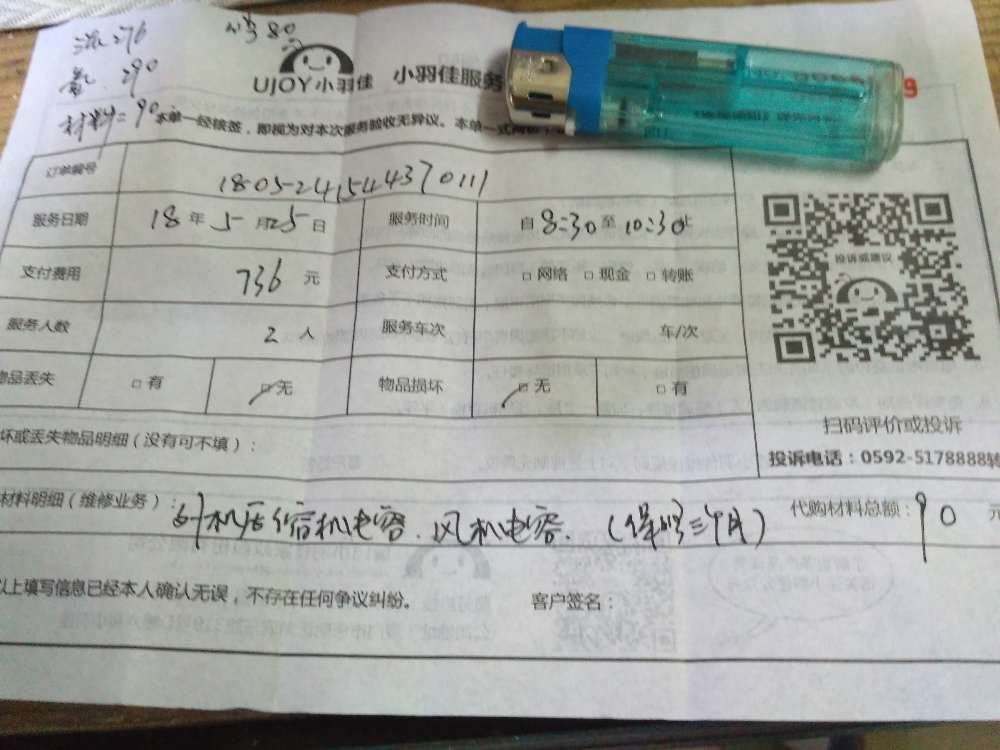 276
80
290
材料=90
UJOY小羽佳 小羽佳服务
本单一经核签，即视为对本次服务验收无异议。本单一式两份
订单编号 1805241544370111
服务日期 18年5月25日 服务时间 自8:30至10:30止
支付费用 736元 支付方式 □网络 □现金 □转账
投诉或建议
服务人数 2人 服务车次 车/次
物品丢失 □有 □无 物品损坏 □无 □有
坏或丢失物品明细（没有可不填）：
扫码评价或投诉
投诉电话：0592-5178888转
材料明细（维修业务）： 外机压缩机电容.风机电容.（保修三个月） 代购材料总额：90元
以上填写信息已经本人确认无误，不存在任何争议纠纷。 客户签名：